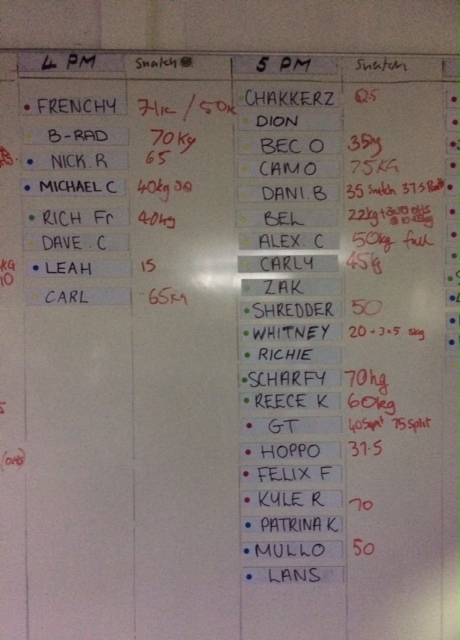 4 PM Snatch
FRENCHY 71k / 50k
B-RAD 70Kg
NICK.R 65
MICHAEL C 40kg
RICH Fr 40kg
DAVE.C
LEAH 15
CARL 65kg
5 PM Snatch
CHAKKERZ
DION
BEC O 35kg
CAM O 75KG
DANI.B 35 Snatch 37.5
BEL 22kg
ALEX.C 50kg full
CARLY 45kg
ZAK
SHREDDER 50
WHITNEY 20
RICHIE
SCHARFY 70kg
REECE K 60kg
GT 75 Split
HOPPO 37.5
FELIX F
KYLE R 70
PATRINA K
MULLO 50
LANS